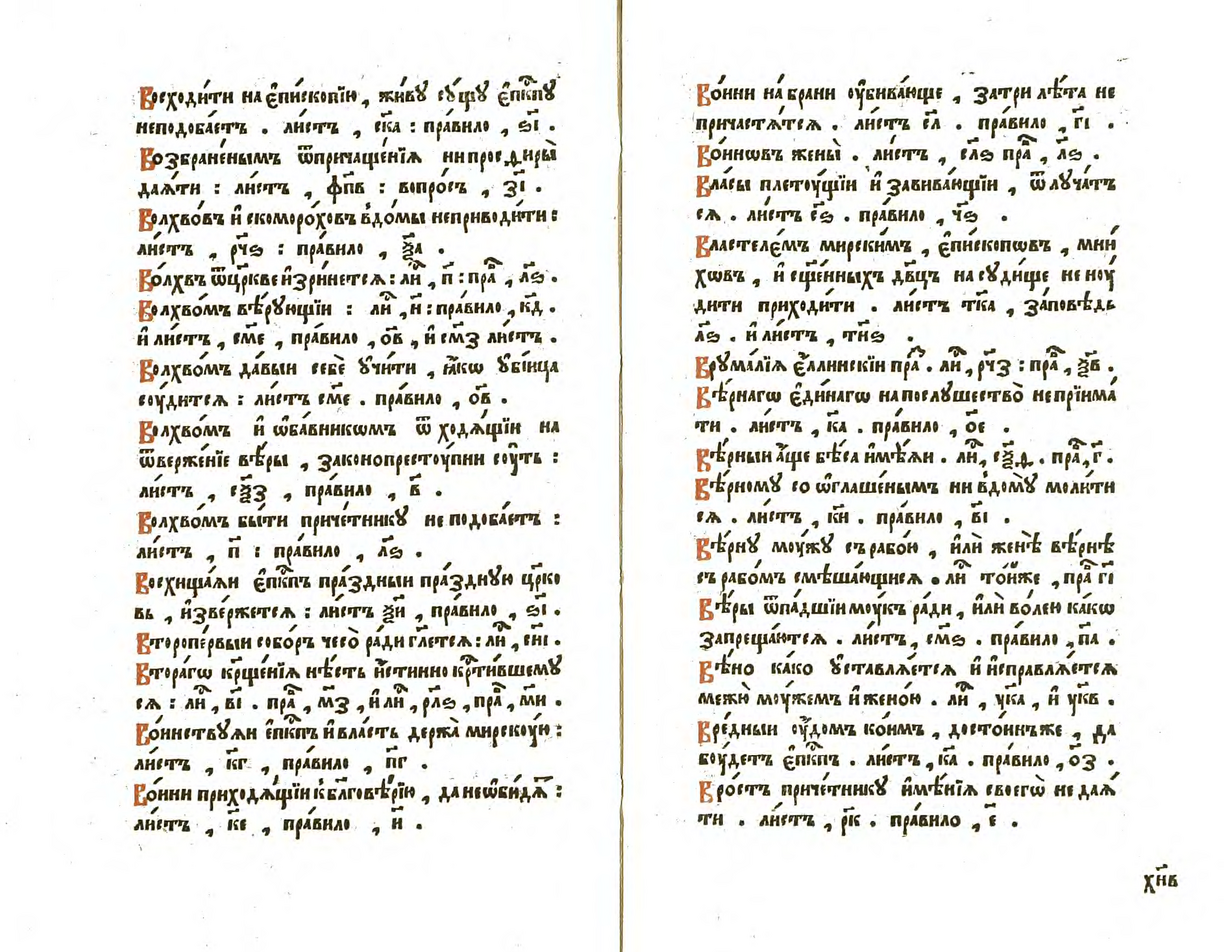 Восходи́ти на є҆пи́скопїю , жи́вꙋ сꙋ́щꙋ є҆пⷭ҇кпꙋ
неподоба́етъ . ли́стъ , ска҃ : пра́вило , ѕ҃і .
Возбране́нымъ ѿприча́щенїѧ ни просѳиры̀
даѧ́ти : ли́стъ , фп҃в : вопро́съ , з҃і .
Волхво́въ и҆ скоморо́ховъ в̾до́мы неприводи́ти :
ли́стъ , рч҃ѕ : пра́вило , ѯ҃а .
Во́лхвъ ѿцр҃кве и҆зри́нетсѧ : лиⷭ҇ , п҃ : праⷡ҇ , л҃ѕ .
Волхво́мъ вѣ́рꙋющїи : лиⷭ҇ , и҃ : пра́вило , к҃д .
и҆ ли́стъ , см҃е , пра́вило , о҃в , и҆ см҃з ли́стъ .
Волхво́мъ да́выи себѐ ᲂу҆чи́ти , ꙗ҆́кѡ ᲂу҆бі́ица
сꙋ́дитсѧ : ли́стъ см҃е . пра́вило , о҃в .
Волхво́мъ и҆ ѡ҆ба́вникѡмъ ѿ ходѧ́щїи на
ѿверже́нїе вѣ́ры , законопрестꙋ́пни сꙋ́ть :
ли́стъ , сѯ҃з , пра́вило , в҃ .
Волхво́мъ бы́ти приче́тникꙋ не подоба́етъ :
ли́стъ , п҃ : пра́вило , л҃ѕ .
Восхища́ѧи є҆пⷭ҇кпъ пра́здныи пра́зднꙋю цр҃ко
вь , и҆зве́ржетсѧ : ли́стъ ѯ҃и , пра́вило , ѕ҃і .
Второпе́рвыи собо́ръ чесо̀ ра́ди гл҃етсѧ : лиⷭ҇ , сн҃і .
Втора́гѡ крⷭ҇щенїѧ нѣ́сть и҆́стинно крⷭ҇ти́вшемꙋ
сѧ : лиⷭ҇ , в҃і . праⷡ҇ , м҃з , и҆ лиⷭ҇ , рл҃ѕ , праⷡ҇ , м҃и .
Во́инствꙋѧи є҆пⷭ҇кпъ и҆ вла́сть держа̀ мирскꙋ́ю :
ли́стъ , к҃г , пра́вило , п҃г .
Во́ини приходѧ́щїи к̾ бл҃гове́рїю , да не ѡ҆би́дѧⷮ :
ли́стъ , к҃е , пра́вило , и҃ .
Во́ини на́ брани ᲂу҆бива́юще , затри лѣ́та не
причастѧ́тсѧ . ли́стъ сл҃ . пра́вило , г҃і .
Во́инѡвъ жены̀ . ли́стъ , сл҃ѕ праⷡ҇ , л҃ѕ .
Вла́сы плетꙋ́щїи и҆ завива́ющїи , ѿлꙋча́тъ
сѧ . ли́стъ с҃ѕ . пра́вило , ч҃ѕ .
Властеле́мъ мирски́мъ , є҆пи́скопѡвъ , мни́
хѡвъ , и҆ сщ҃е́нныхъ дв҃цъ на сꙋди́ще не нꙋ́
дити приходи́ти . ли́стъ тк҃а , за́повѣдь
л҃ѕ . и҆ ли́стъ , тн҃ѕ .
Врꙋма́лїѧ є҆́ллинскїи праⷡ҇ . лиⷭ҇ , рч҃з : праⷡ҇ , ѯ҃в .
Вѣ́рнагѡ є҆ди́нагѡ на послꙋ́шество̀ не прїима́
ти . ли́стъ , к҃а . пра́вило , о҃е .
Вѣ́рныи а҆́ще бѣ́са и҆мѣ́ѧи . лиⷭ҇ , сѯ҃д . праⷡ҇ , г҃ .
Вѣ́рномꙋ со ѡ҆глаше́нымъ ни в̾домꙋ̀ моли́ти
сѧ . ли́стъ , к҃и . пра́вило , в҃і .
Вѣ́рнꙋ мꙋ́жꙋ съ рабо́ю , и҆лѝ женѣ̀ вѣ́рнѣ
съ рабо́мъ смѣша́ющисѧ . лиⷭ҇ то́иже , праⷡ҇ г҃і
Вѣ́ры ѿпа́дшїи мꙋ́къ ра́ди , и҆лѝ во́лею ка́кѡ
запреща́ютсѧ . ли́стъ , см҃ѕ . пра́вило , п҃а .
Вѣ́но како ᲂу҆ставлѧ́етсѧ и҆ и҆справлѧ́етсѧ
межю̀ мꙋ́жемъ и҆ жено́ю . лиⷭ҇ , ук҃а , и҆ ук҃в .
Вре́дныи ᲂу҆́домъ ко́имъ , досто́инъ же , да
бꙋ́детъ є҆пⷭ҇кпъ . ли́стъ , к҃а . пра́вило , о҃з .
Вро́стъ приче́тникꙋ и҆мѣ́нїѧ своегѡ̀ не даѧ́
ти . ли́стъ , рк҃ . пра́вило , е҃ .
хн҃в